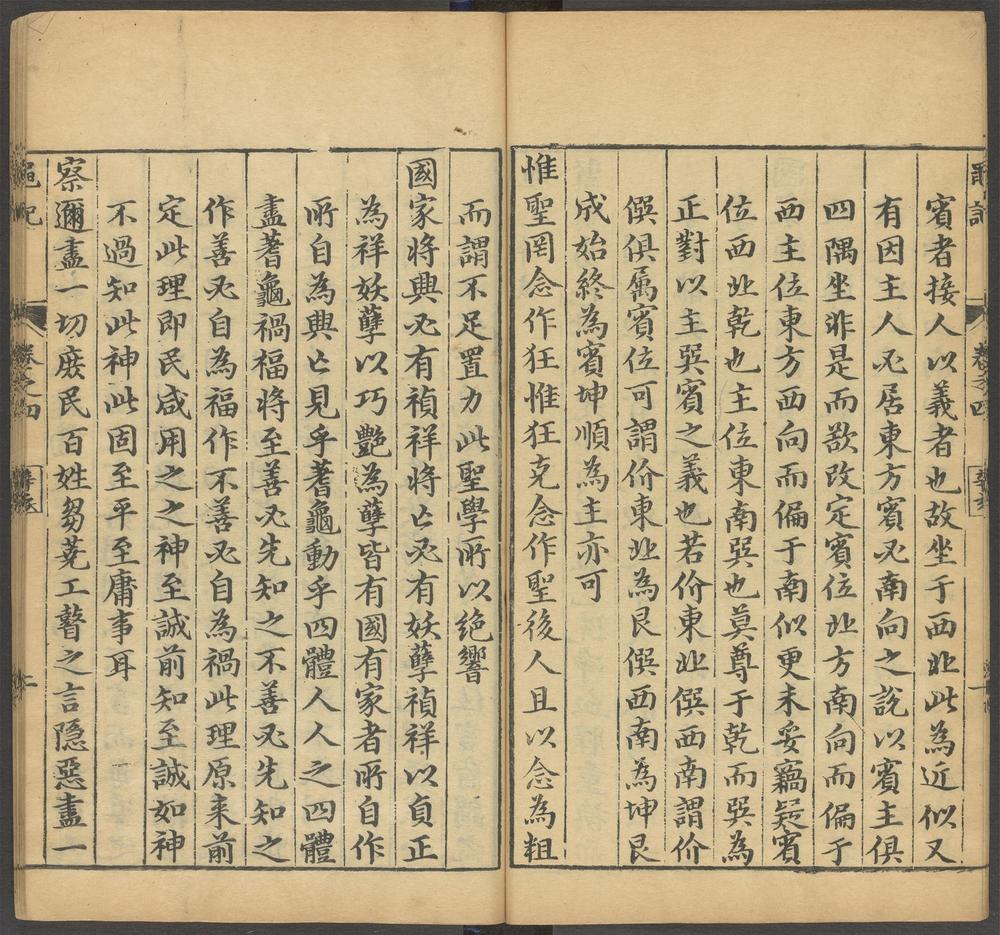 賓者接人以義者也故坐于西北此為近似又
有因主人必居東方賓必南向之說以賓主俱
四隅坐非是而欲改定賓位北方南向而偏于
西主位東方西向而偏于南似更未妥竊疑賓
位西北乾也主位東南巽也莫尊于乾而巽為
正對以主巽賓之義也若价東北僎西南謂价
僎俱屬賓位可謂价東北為艮僎西南為坤艮
成始終為賓坤順為主亦可
惟聖罔念作狂惟狂克念作聖後人且以念為粗
而謂不足置力此聖學所以絕響
國家將興必有禎祥將亡必有妖孽禎祥以貞正
為祥妖孽以巧艷為孽皆有國有家者所自作
所自為興亡見乎蓍龜動乎四體人人之四體
盡蓍龜禍福將至善必先知之不善必先知之
作善必自為福作不善必自為禍此理原來前
定此理即民咸用之之神至誠前知至誠如神
不過知此神此固至平至庸事耳
察邇盡一切庶民百姓芻蕘工瞽之言隱惡盡一
卷之四